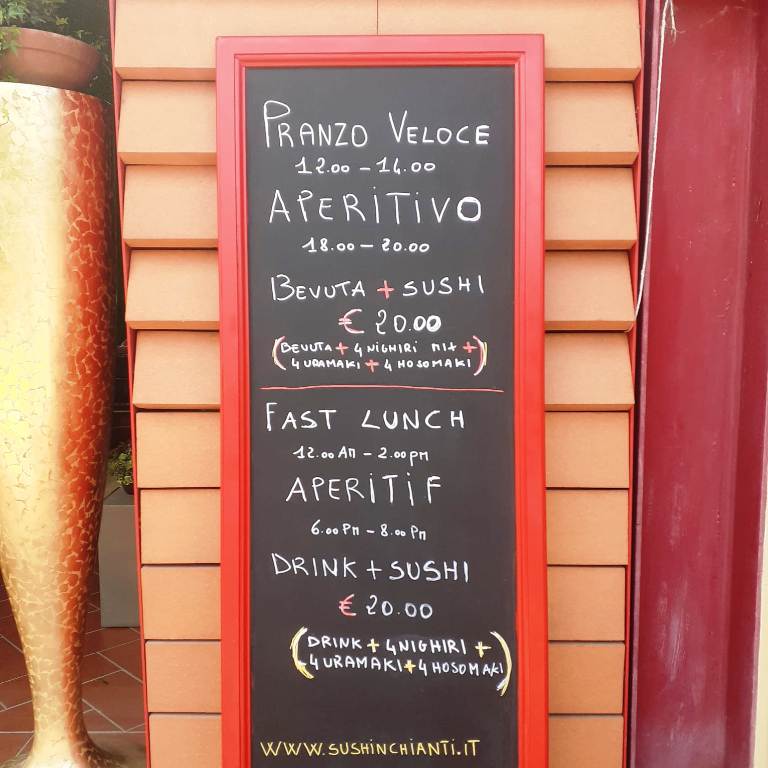 PRANZO VELOCE
12.00 - 14.00
APERITIVO
18.00 - 20.00
BEVUTA + SUSHI
€ 20.00
(BEVUTA + 4 NIGHIRI MIX +
4 URAMAKI + 4 HOSOMAKI)
FAST LUNCH
12.00 AM - 2.00 pm
APERITIF
6.00 PM - 8.00 PM
DRINK + SUSHI
€ 20.00
(DRINK + 4 NIGHIRI +
4 URAMAKI + 4 HOSOMAKI)
WWW.SUSHINCHIANTI.IT